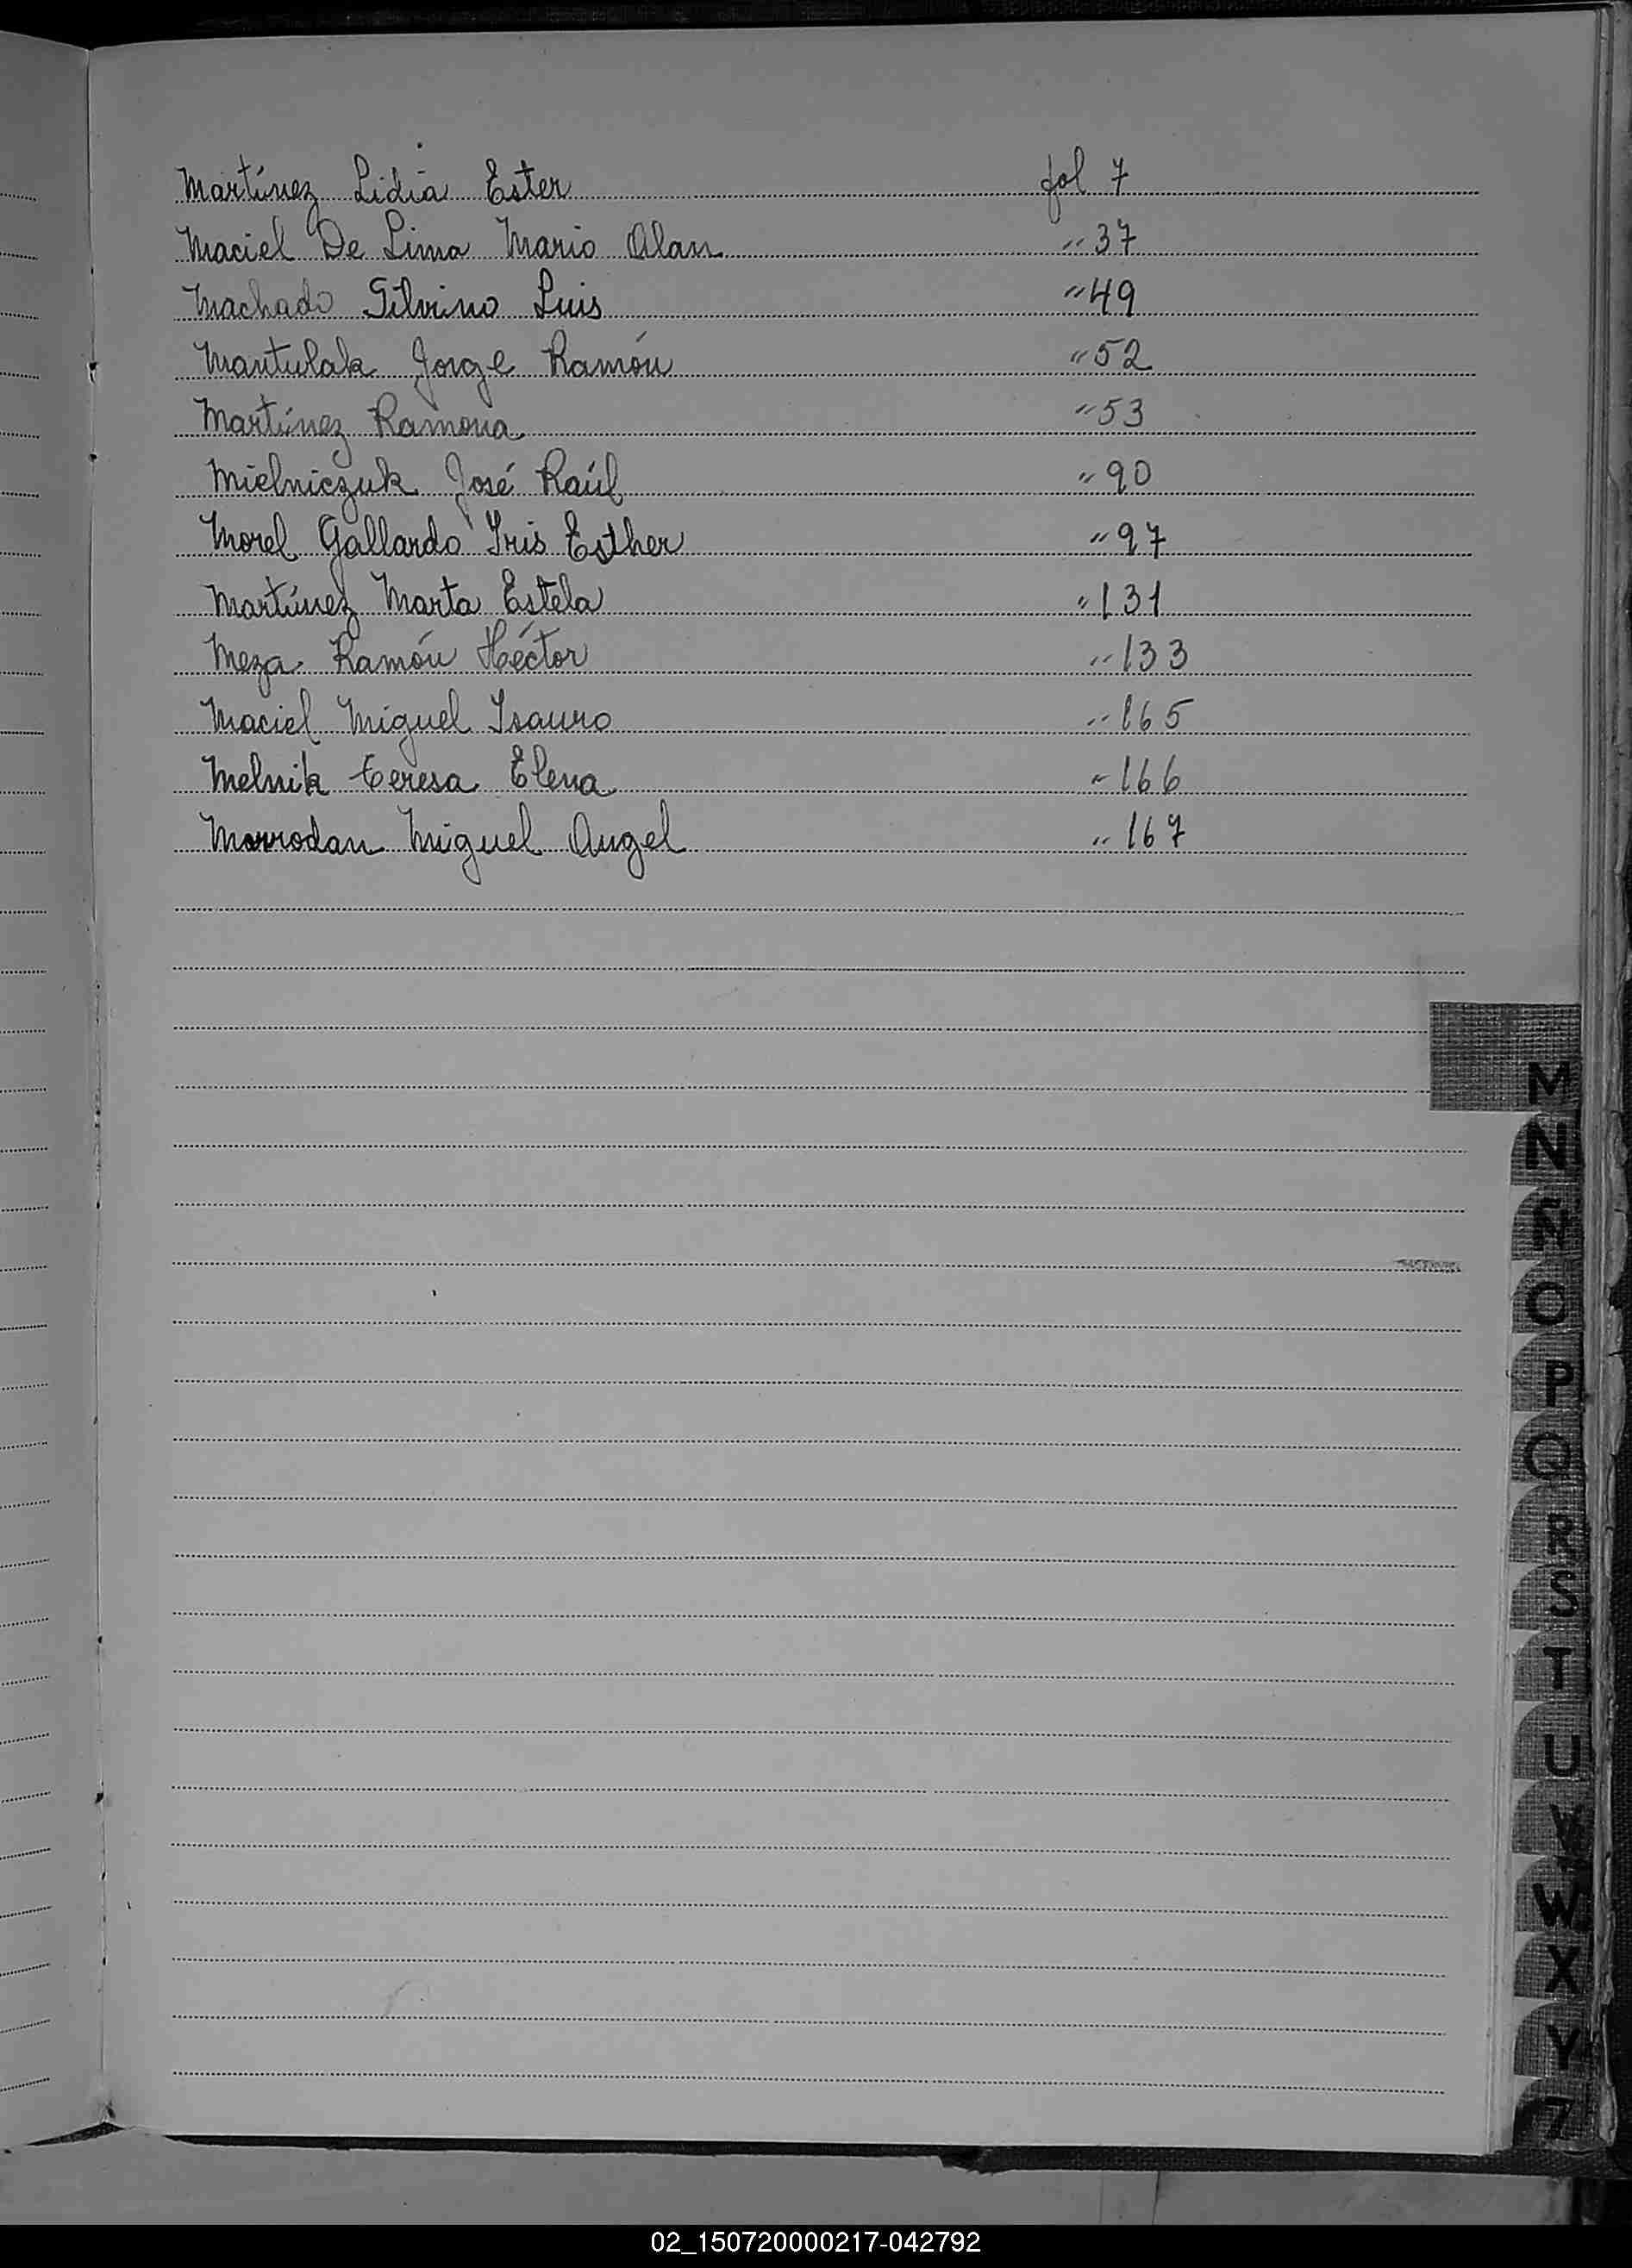 Martínez Lidia Ester fol 7
Maciel De Lima Mario Alan " 37
Machado Silvino Luis " 49
Mantulak Jorge Ramón " 52
Martínez Ramona " 53
Mielniczuk José Raúl " 90
Morel Gallardo Iris Esther " 97
Martínez Marta Estela " 131
Meza Ramón Héctor " 133
Maciel Miguel Isauro " 165
Melnik Teresa Elena " 166
Morrodan Miguel Angel " 167
M
N
Ñ
O
P
Q
R
S
T
U
V
W
X
Y
Z
02_150720000217-042792